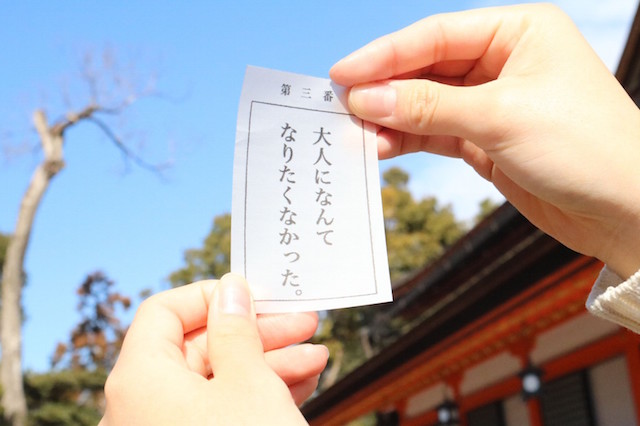 第三番
大人になんて
なりたくなかった。